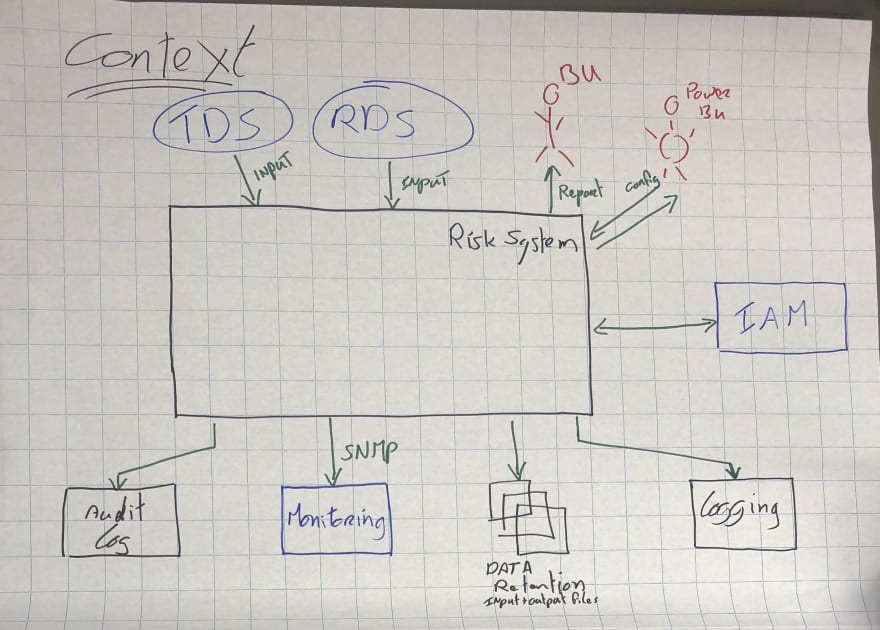 Context
TDS
RDS
BU
Power
Bu
INPUT
INPUT
Report
config
Risk System
IAM
SNMP
Audit
Log
Monitoring
DATA
Retention
Input + output files
Logging